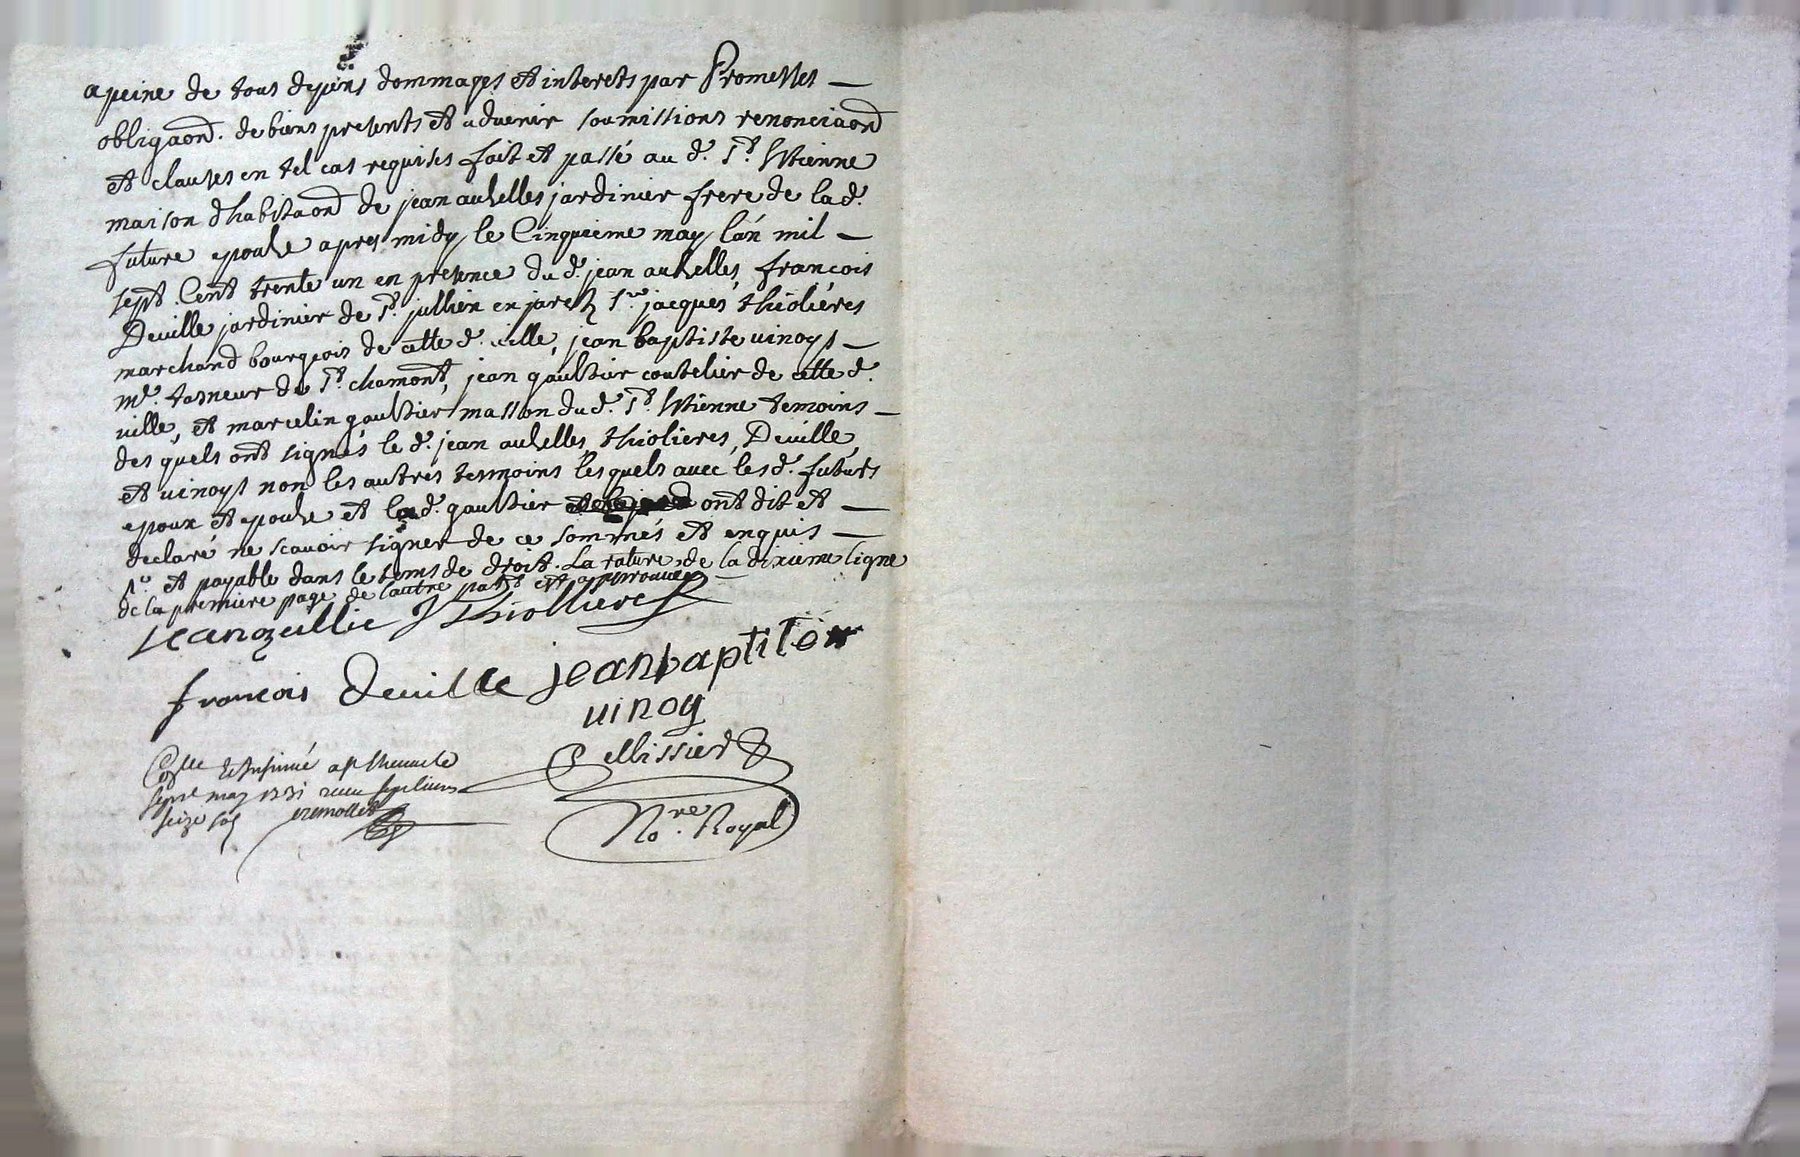 a peine de tous depens dommages et interets par Promesses
obligaon͠d. de biens presents et aduenir soumissions renonciaon͠d
et clauses en tel cas requises fait et passé au d. St. Estienne
maison dhabitaon͠d de jean auzelles jardinier frere de la d.
future epouse apres midy le Cinquieme may lan mil
sept Cent trente un en presence du d. jean auzelles, francois
Deuille jardinier de St. jullien en jarez Sr. jacques thiolieres
marchand bourgeois de cette d. uille, jean baptiste uinoys
me. tasneur de St. chamont, jean gaultier coutelier de cette d.
uille, et marcelin gaultier masson du d. St. Estienne temoins
des quels ont signés le d. jean auzelles, thiolieres, Deuille,
et uinoys non les autres tesmoins lesquels auec les d. futurs
epoux et epouse et la d. gaultier ont dit et
declaré ne scauoir signer de ce sommés et enquis
et payable dans le tems de droit. La rature de la dixieme ligne
de la premiere page de lautre part est approuuée
Jean ozellie J Thiolliere
francois deuille jeanbaptite
uinoy
Pellissier
Nore. Royal
may 1731
seize sols